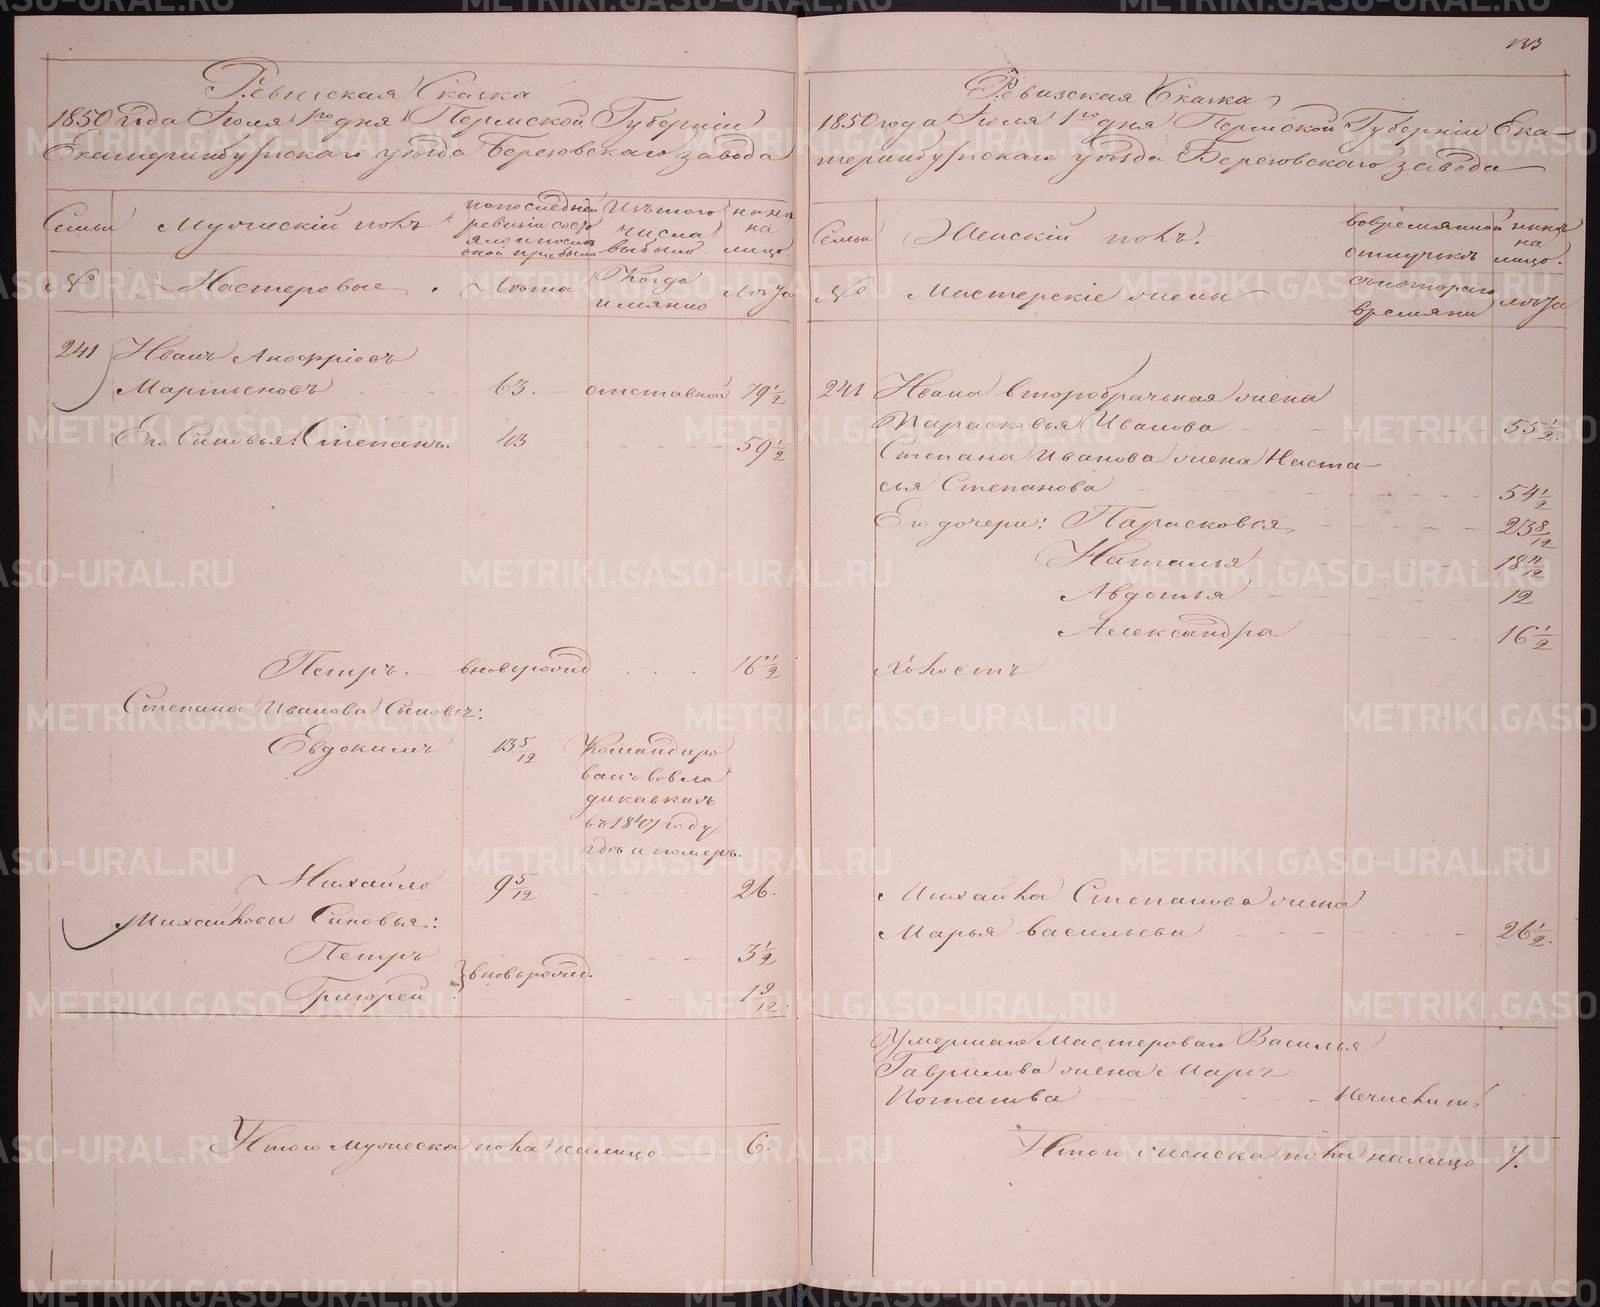 133
Ревизская Сказка
1850 года Июля 1го дня Пермской Губернии
Екатеринбургскаго уезда Березовскаго завода
Семьи
Мужескій полъ
по последней
ревизіи состо
яло и после
оной прибыло
Изъ того
числа
выбыло
ныне
на
лицо
№
Мастеровые
Лета
Когда
имянно
Лета
241 Иванъ Анофріевъ
Мартьяновъ 63. отставной 79 1/2
Его Сыновья: Степанъ. 43 59 1/2
Петръ. вновьрожд 16 1/2
Степана Иванова Сыновья:
Евдокимъ 13 5/12 Командиро
ванъ во Вла
дикавказъ
въ 1847 году
где и померъ.
Михайло 9 5/12 26.
Михайловы Сыновья:
Петръ 3 1/2
вновьрожд.
Григорей 1 9/12
Итого мужеска пола налицо 6.
Ревизская Сказка
1850 года Июля 1го дня Пермской Губерніи Ека-
теринбургскаго уезда Березовскаго завода
Семьи
Женскій полъ.
во временной
отлучке
ныне
на
лицо.
№
Мастерскіе жены
съ котораго
времяни
лета
241 Ивана второбрачьная жена
Парасковья Иванова 55 1/2
Степана Иванова жена Наста-
сья Степанова 54 1/2
Его дочери: Парасковья 23 8/12
Наталья 18 11/12
Авдотья 12
Александра 16 1/2
Холостъ
Михайла Степанова жена
Марья Васильева 26 1/2.
Умершаго Мастероваго Василья
Гаврилова жена Марья
Потапова
Итого женска пола налицо 7.
METRIKI.GASO-URAL.RU